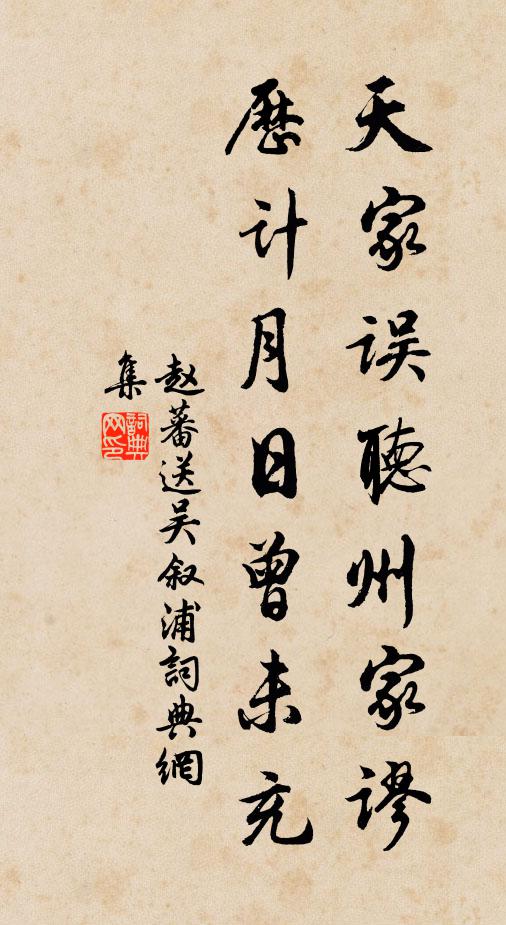 天家误聴州家谬
歷计月日曾未充
赵蕃送吴叙浦詞典網
集
詞典网印